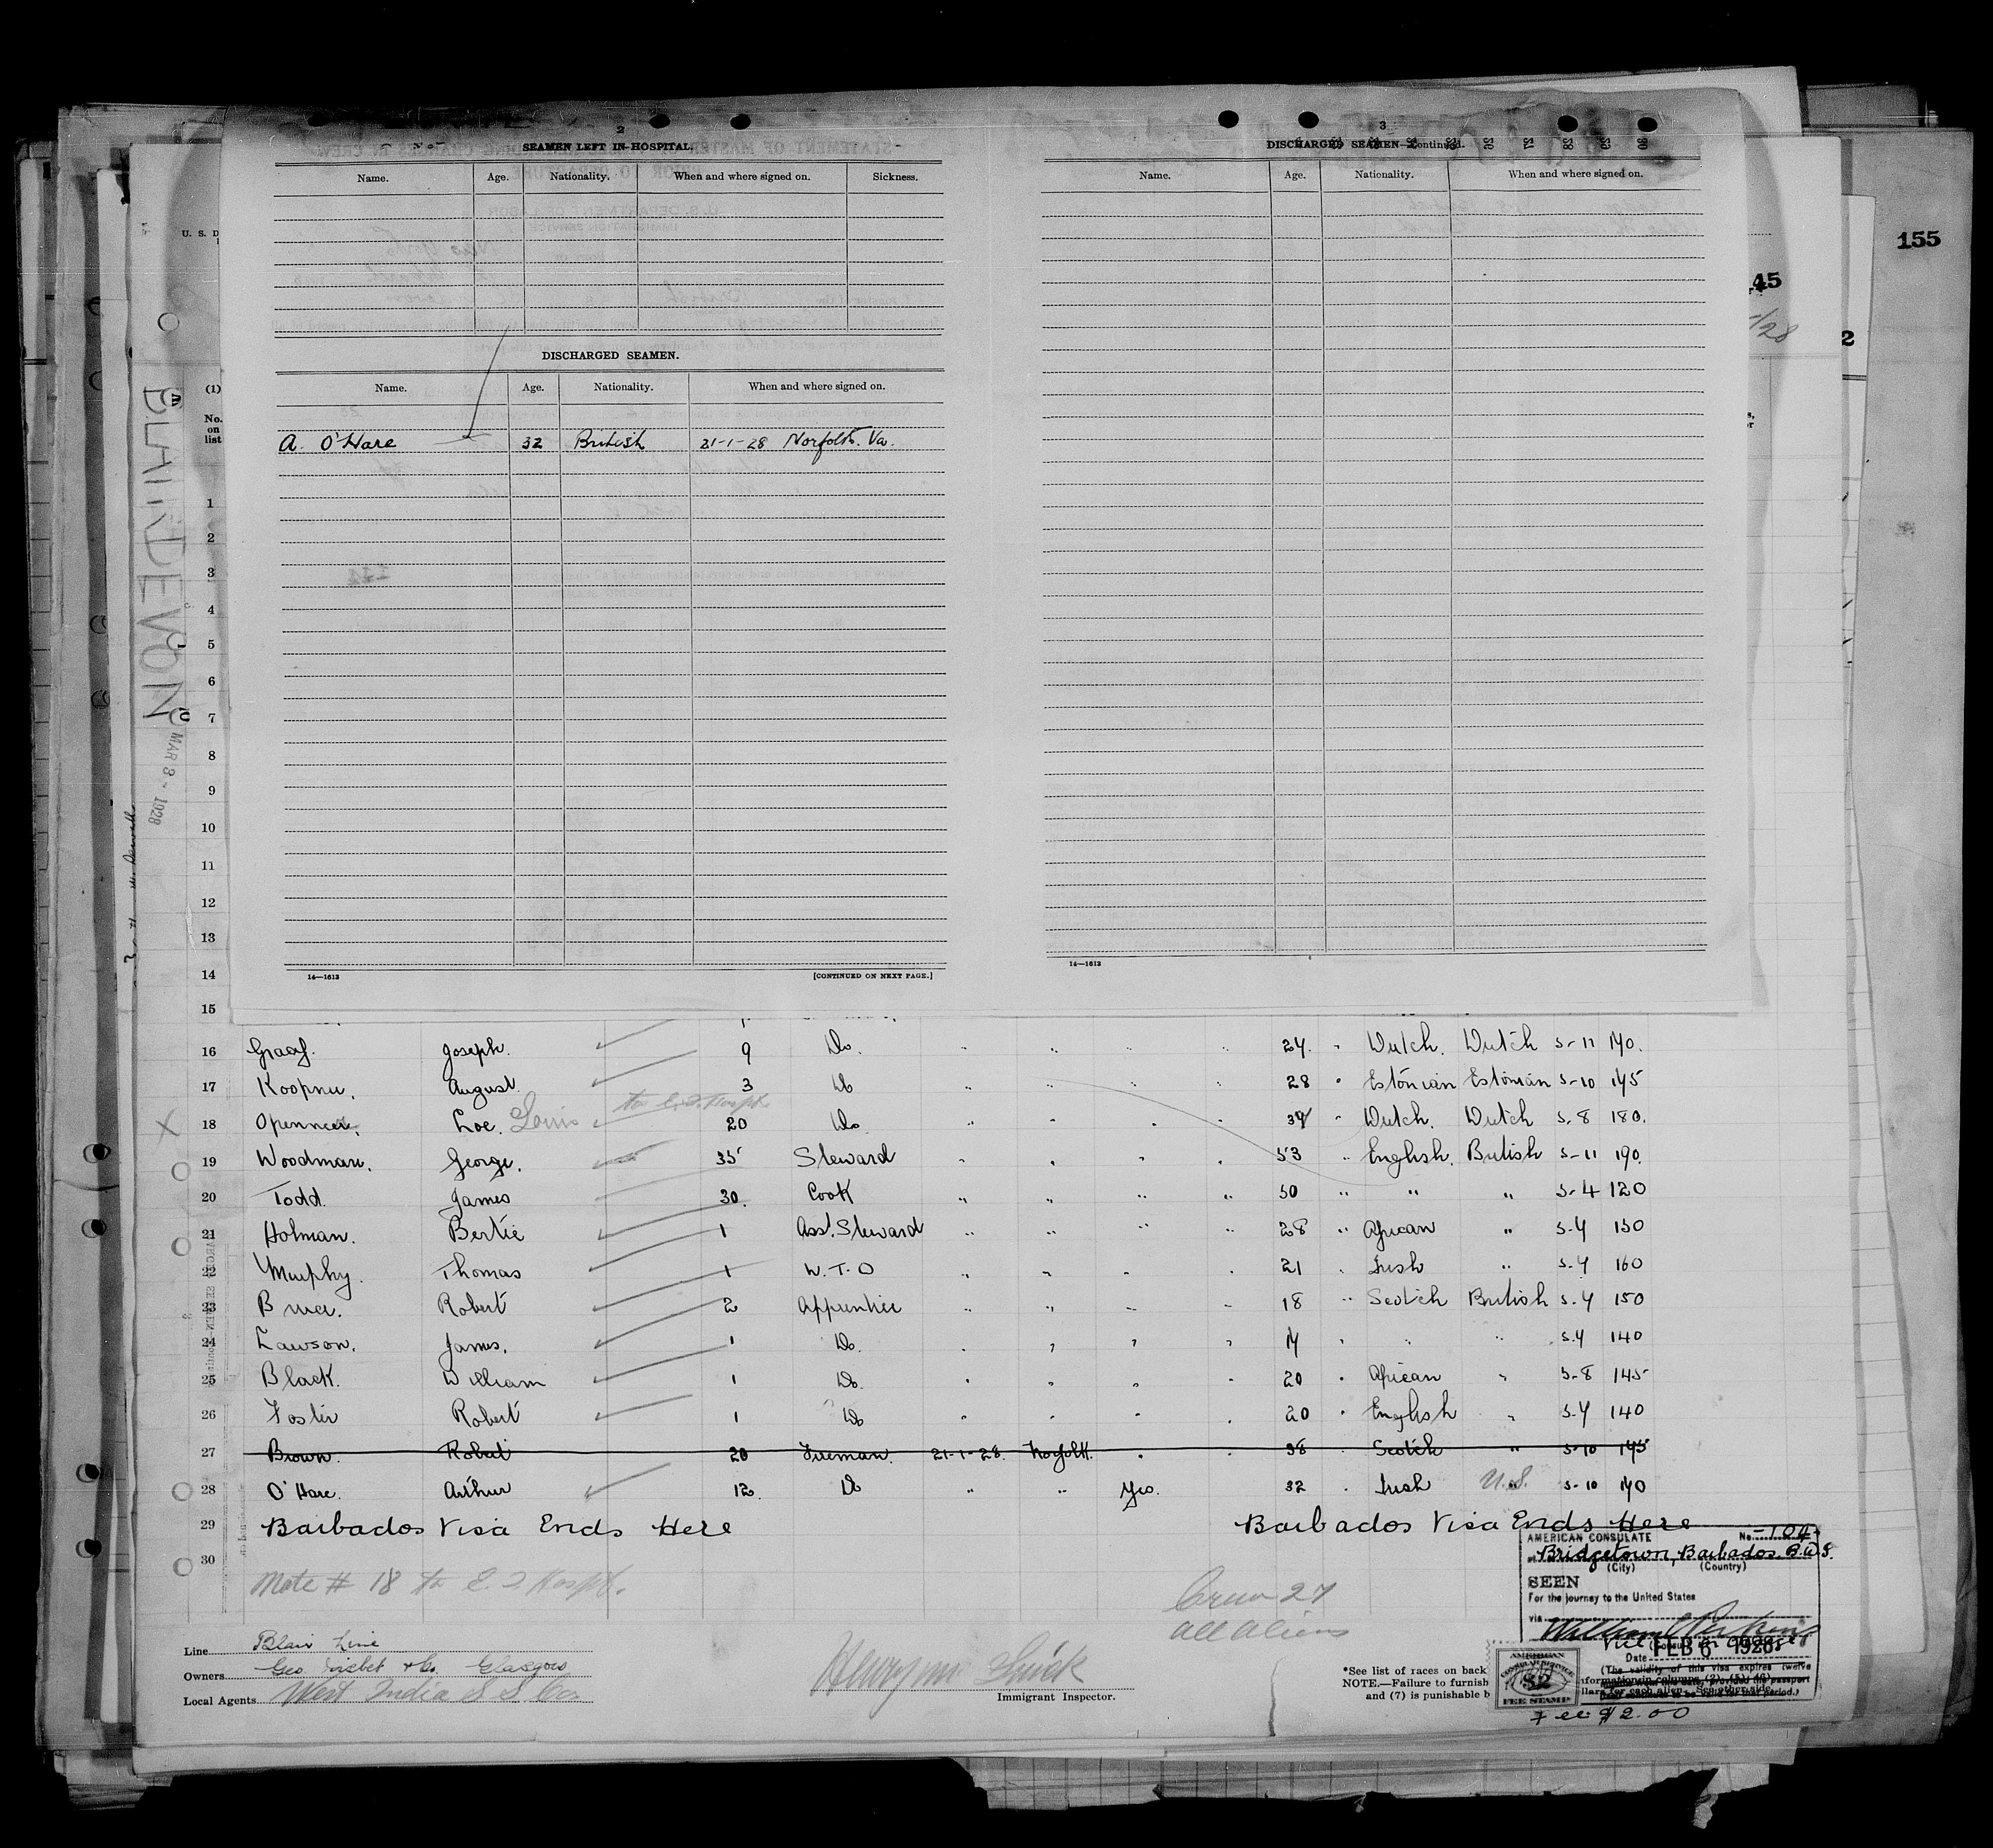 2
SEAMEN LEFT IN HOSPITAL.
Name. Age. Nationality. When and where signed on. Sickness.
DISCHARGED SEAMEN.
Name. Age. Nationality. When and where signed on.
A. O'Hare 32 British 21-1-28 Norfolk. Va.
14—1613 [CONTINUED ON NEXT PAGE.]
3
DISCHARGED SEAMEN—Continued.
Name. Age. Nationality. When and where signed on.
14—1613
155
45
/28
2
U. S. D
(1)
No. on list
BLAIRDEVON
MAR 8 - 1928
1
2
3
4
5
6
7
8
9
10
11
12
13
14
15
16 Graaf. Joseph. 9 Do. " " " " 24. " Dutch. Dutch 5-11 140.
17 August 3 Do " " " " 28 " Estonian Estonian 5-10 145
to E. I. Hospt.
X 18 Loe. Louis 20 Do " " " " " Dutch. Dutch 5-8 180.
19 Woodman. George. 35 Steward " " " " 53 " English. British 5-11 190.
20 Todd. James 30. Cook " " " " 50 " " " 5-4 120
21 Holman. Bertie 1 Asst. Steward " " " " 28 " African " 5-4 150
22 Murphy. Thomas 1 W.T.O " " " " 21 " Irish " 5-4 160
23 Robert 2 Apprentice " " " " 18 " Scotch British 5-4 150
24 Lawson. James. 1 Do. " " " " " " " 5-4 140
25 Black. William 1 Do. " " " " 20 " African " 5-8 145
26 Foster Robert 1 Do " " " " 20 " English " 5-4 140
27 Brown. Robert 20 Fireman. 21-1-28. Norfolk. " " 38 Scotch " 5-10 145
28 O'Hare. Arthur 12. Do " " Yes. 32 " Irish U.S. 5-10 140
29 Barbados Visa Ends Here Barbados Visa Ends Here
30
Note # 18 to E. I. Hospt.
Crew 27
all aliens
AMERICAN CONSULATE No. 104
Bridgetown, Barbados. B.W.I.
(City) (Country)
SEEN
For the journey to the United States
via
Date FEB 6 1928
(The validity of this visa expires twelve
AMERICAN
CONSULAR SERVICE
$2
FEE STAMP
Fee $2.00
Line Blair Line
Owners Geo. Nisbet & Co. Glasgow
Local Agents West India S S Co.
Immigrant Inspector.
*See list of races on back
NOTE.—Failure to furnish
and (7) is punishable b